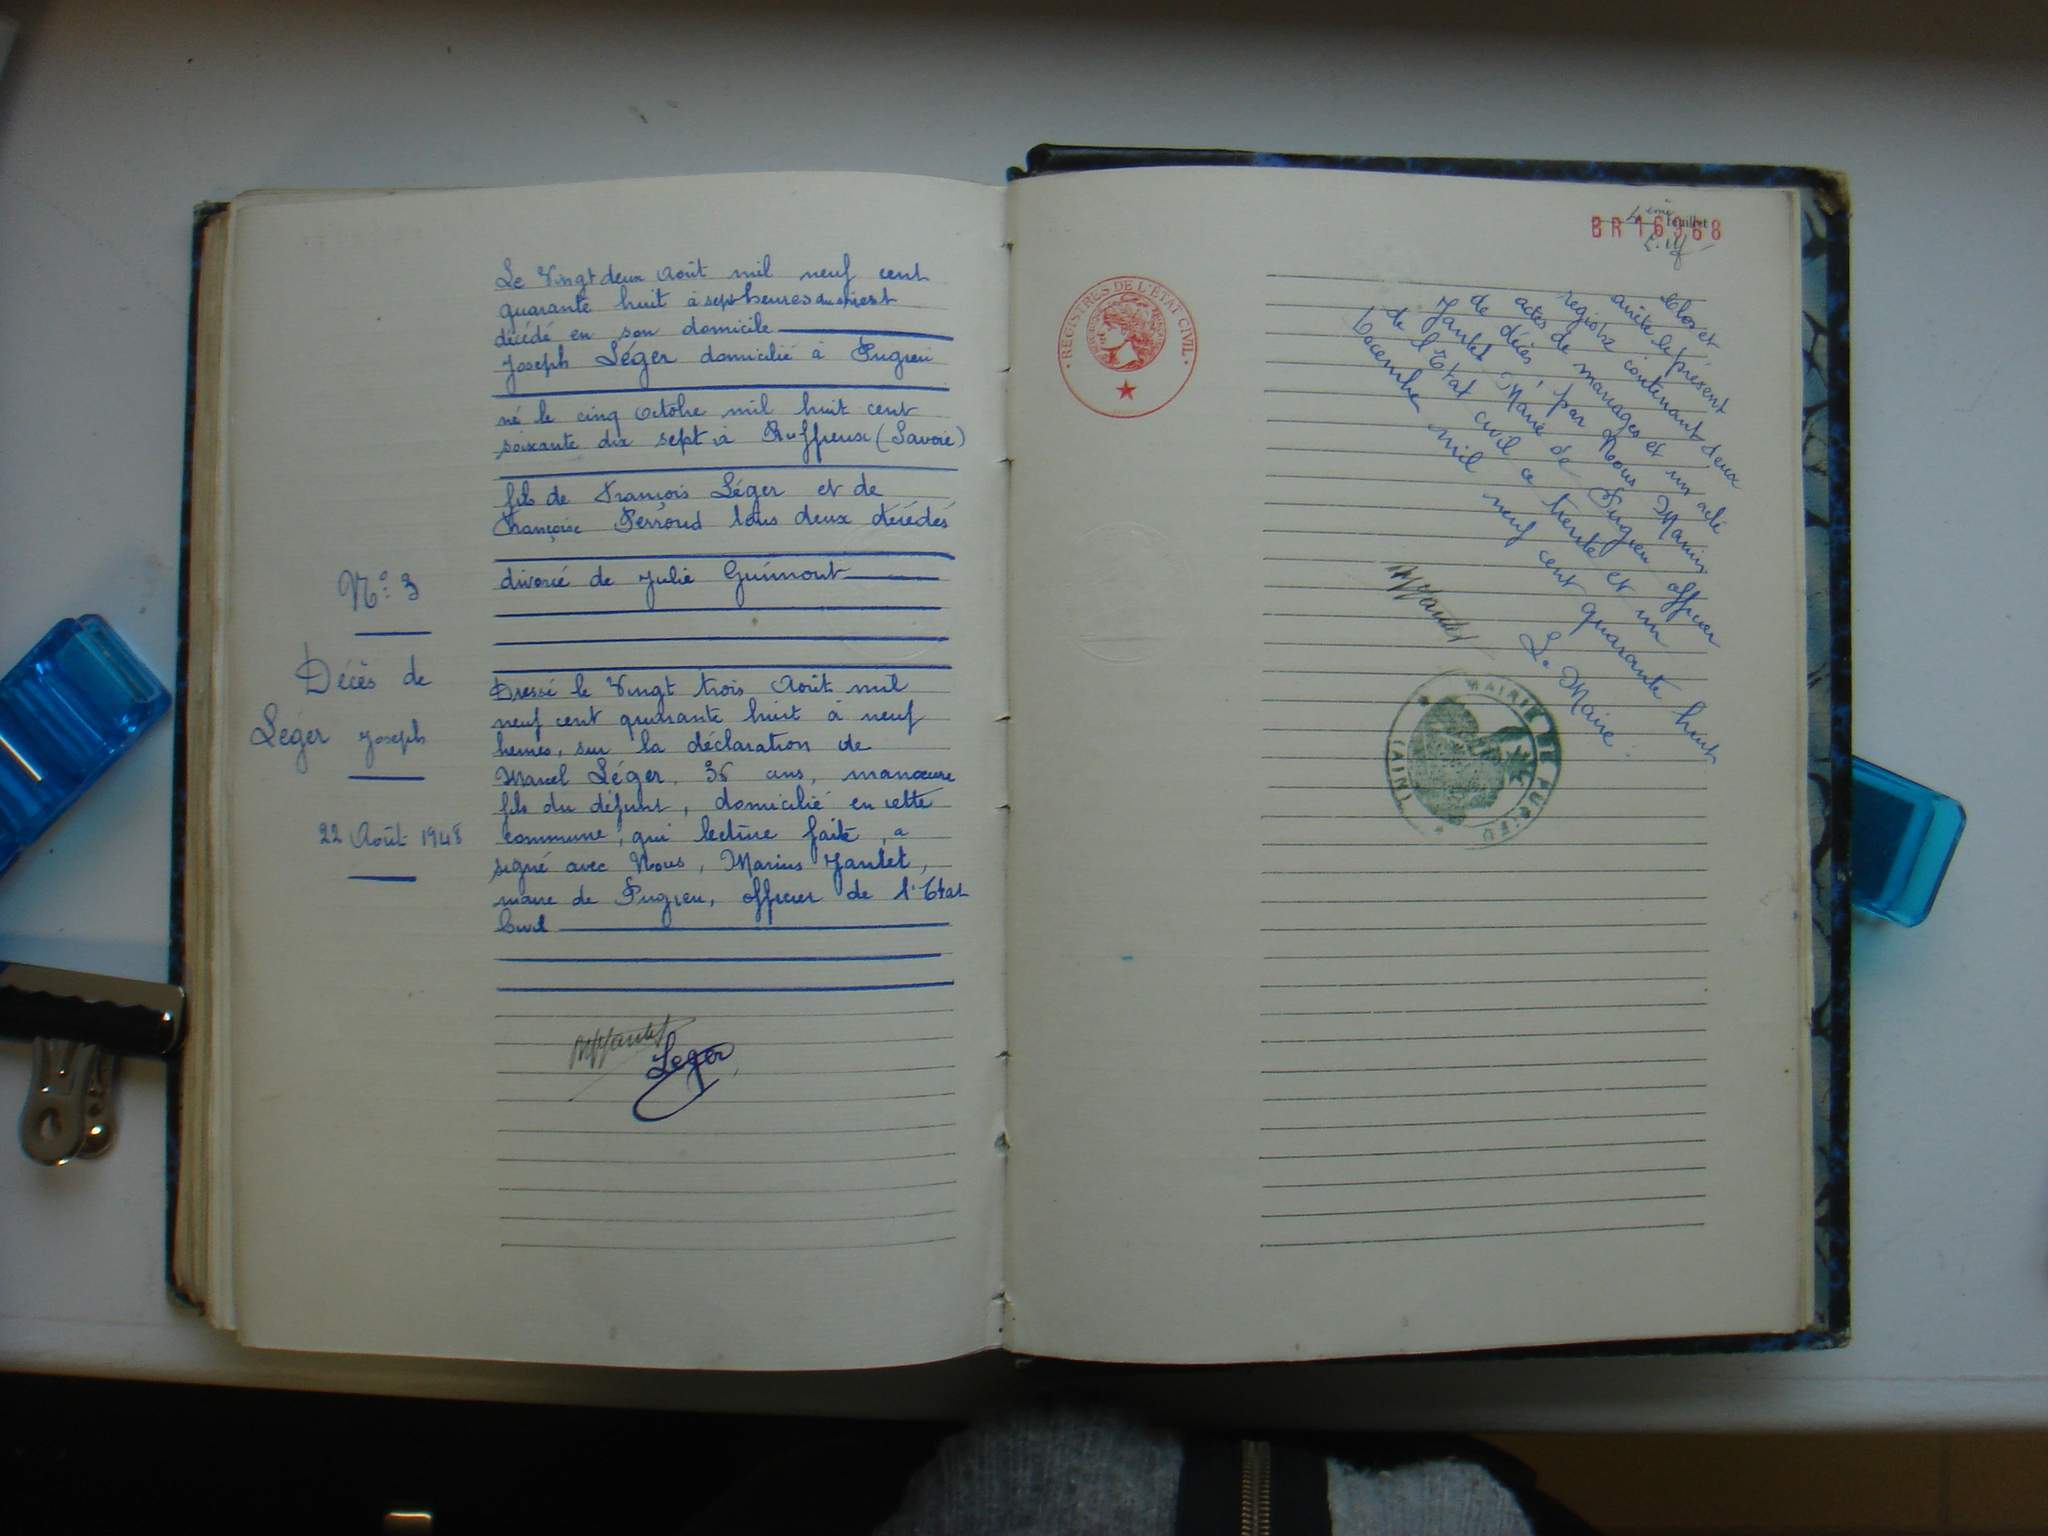 N° 3
Décès de
Léger Joseph
22 Août 1948
Le Vingt deux Août mil neuf cent
quarante huit à sept heures du est
décédé en son domicile
Joseph Léger domicilié à Pugieu
né le cinq Octobre mil huit cent
soixante dix sept à Ruffieux (Savoie)
fils de François Léger et de
Françoise Perroud tous deux décédés
divorcé de Julie Guimont
Dressé le Vingt trois Août mil
neuf cent quarante huit à neuf
heures, sur la déclaration de
Marcel Léger, 36 ans, manœuvre
fils du défunt, domicilié en cette
commune, qui lecture faite, a
signé avec Nous, Marius Jantet,
maire de Pugieu, officier de l'Etat
Civil
MJantet
Leger
4ème feuillet
BR 16968
REGISTRES DE L'ETAT CIVIL
Clos et
arrêté le présent
registre contenant deux
actes de mariages et un acte
de décès, par Nous Marius
Jantet Maire de Pugieu officier
de l'Etat civil ce trente et un
Décembre mil neuf cent quarante huit
Le Maire :
MJantet
MAIRIE DE PUGIEU
(AIN)